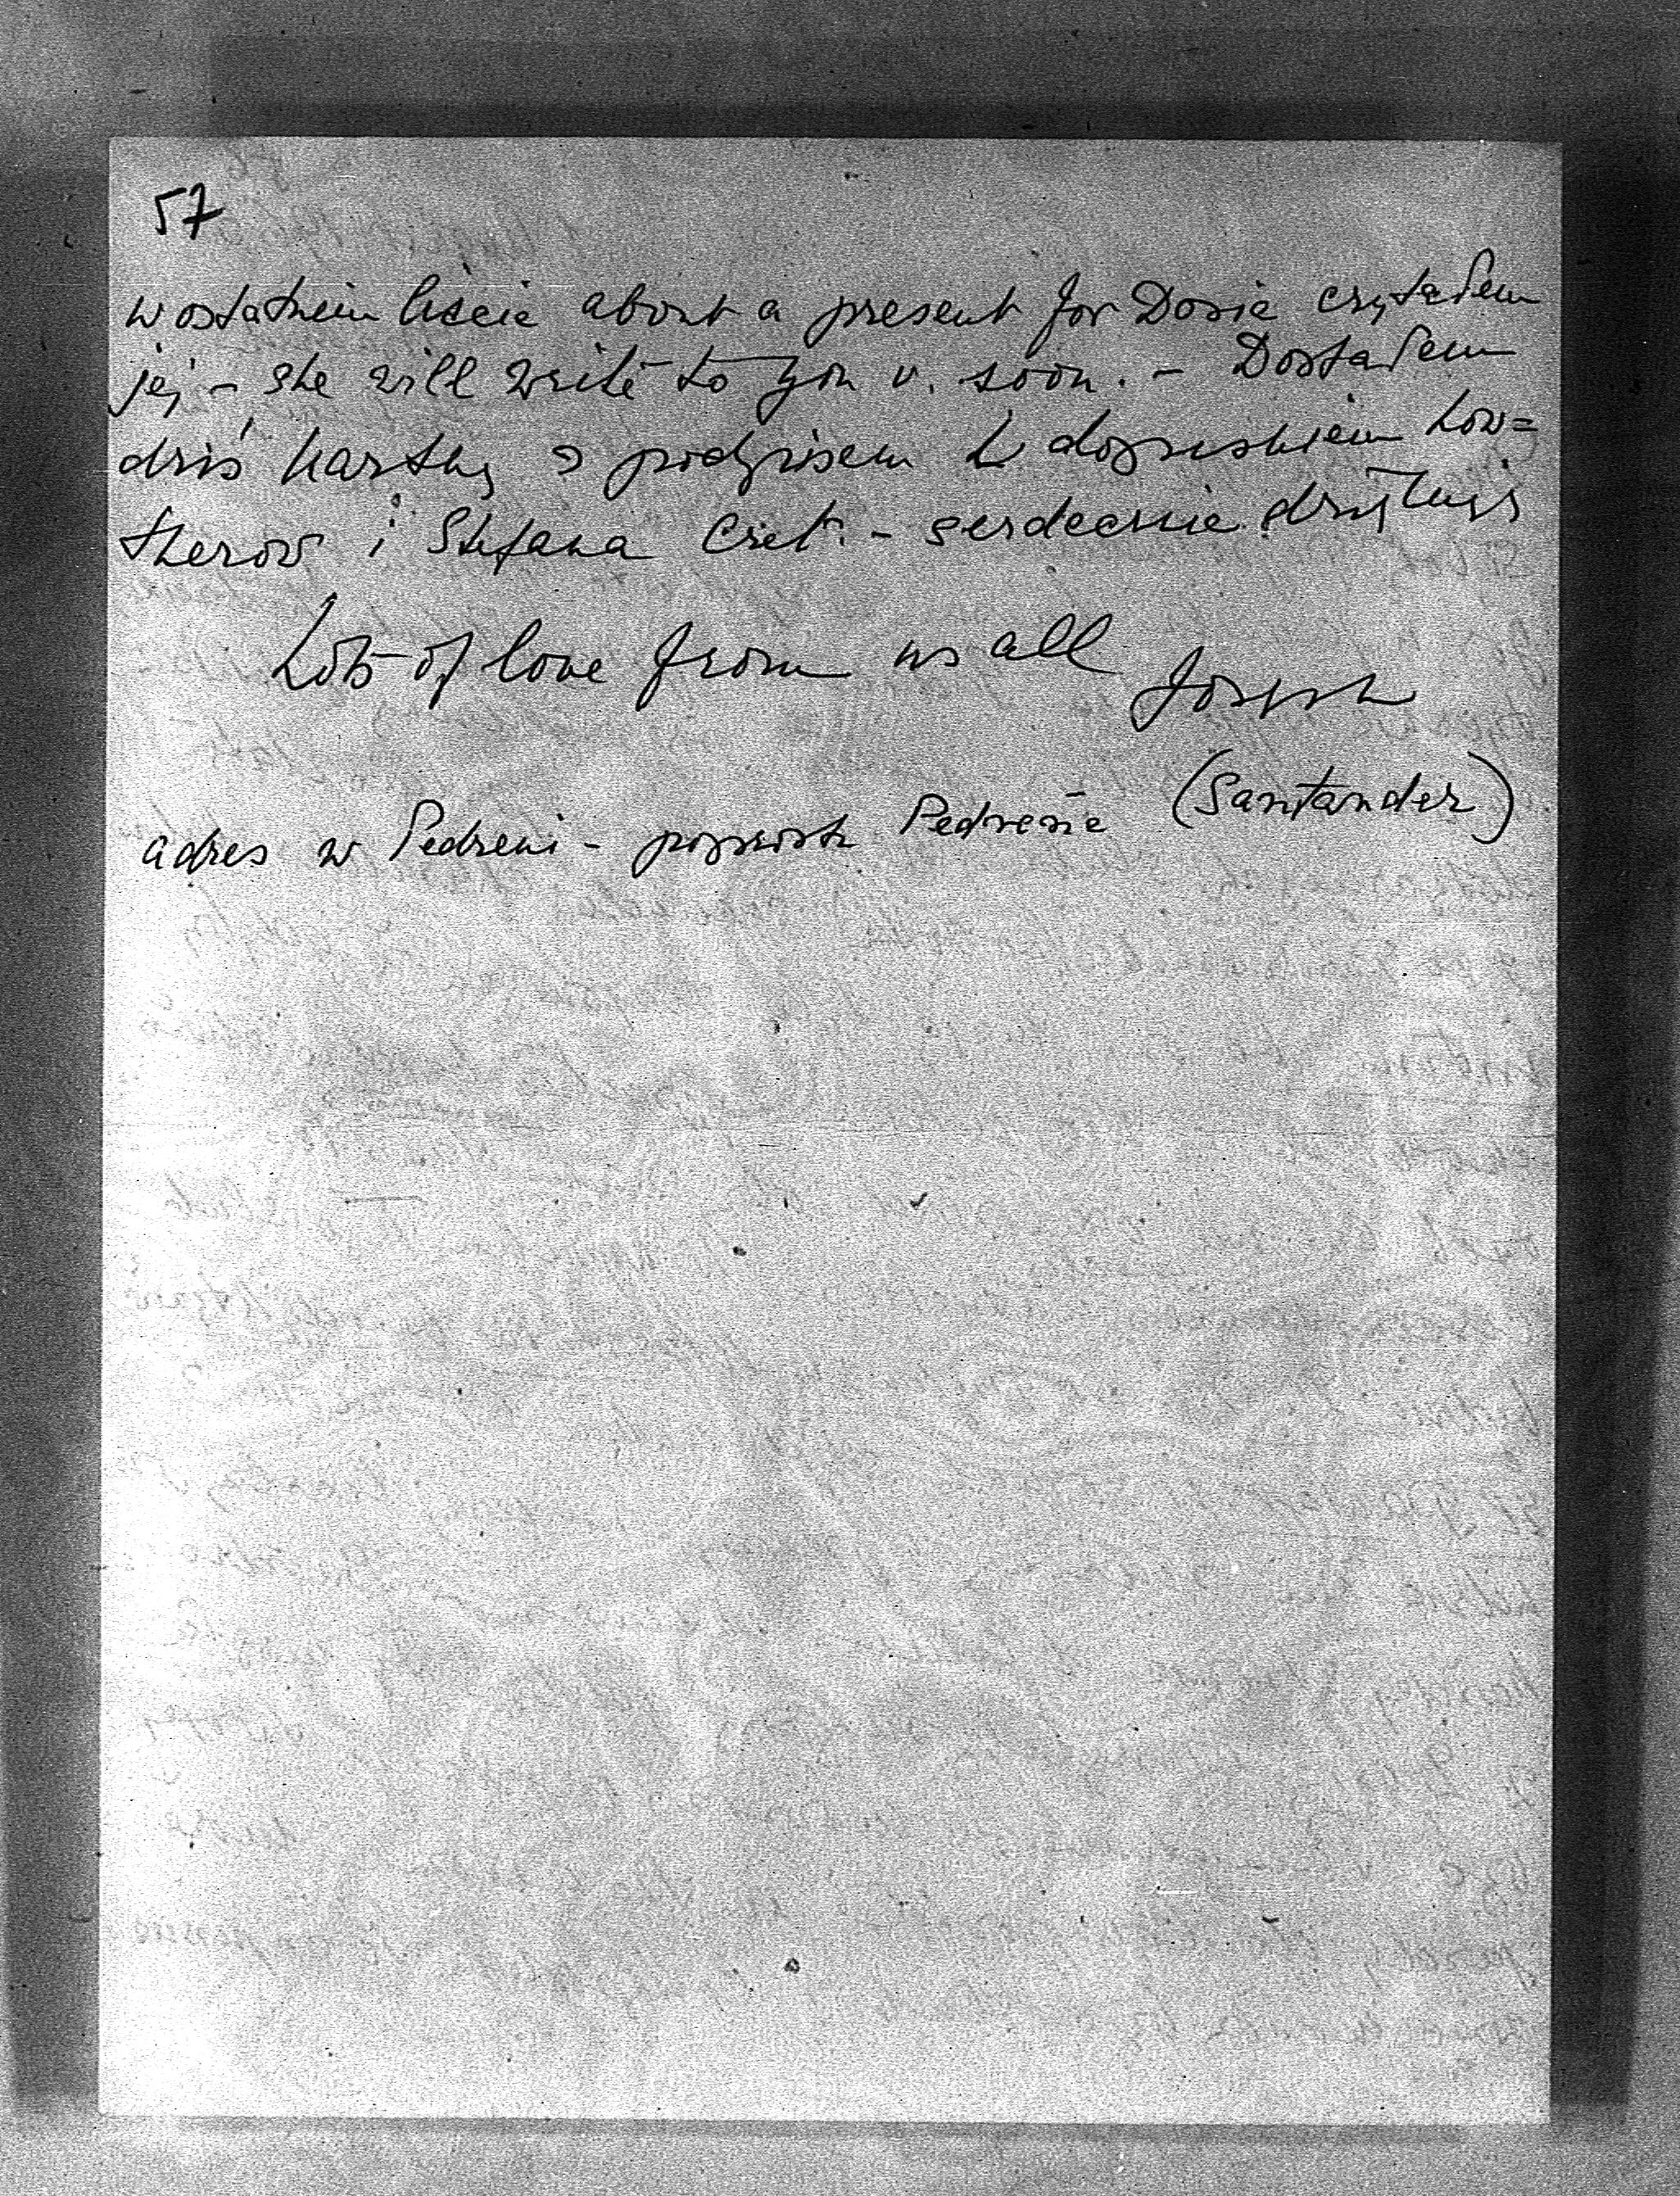 57
w ostatnim liście about a present for Dosia czytałem
jej – she will write to you v. soon. – Dostałem
dziś kartkę z podpisem & dopiskiem Low=
therów i Stefana Czet. – serdecznie dziękuję
Lots of love from us all Joseph
adres w Pedreni – poprostu Pedreña (Santander)